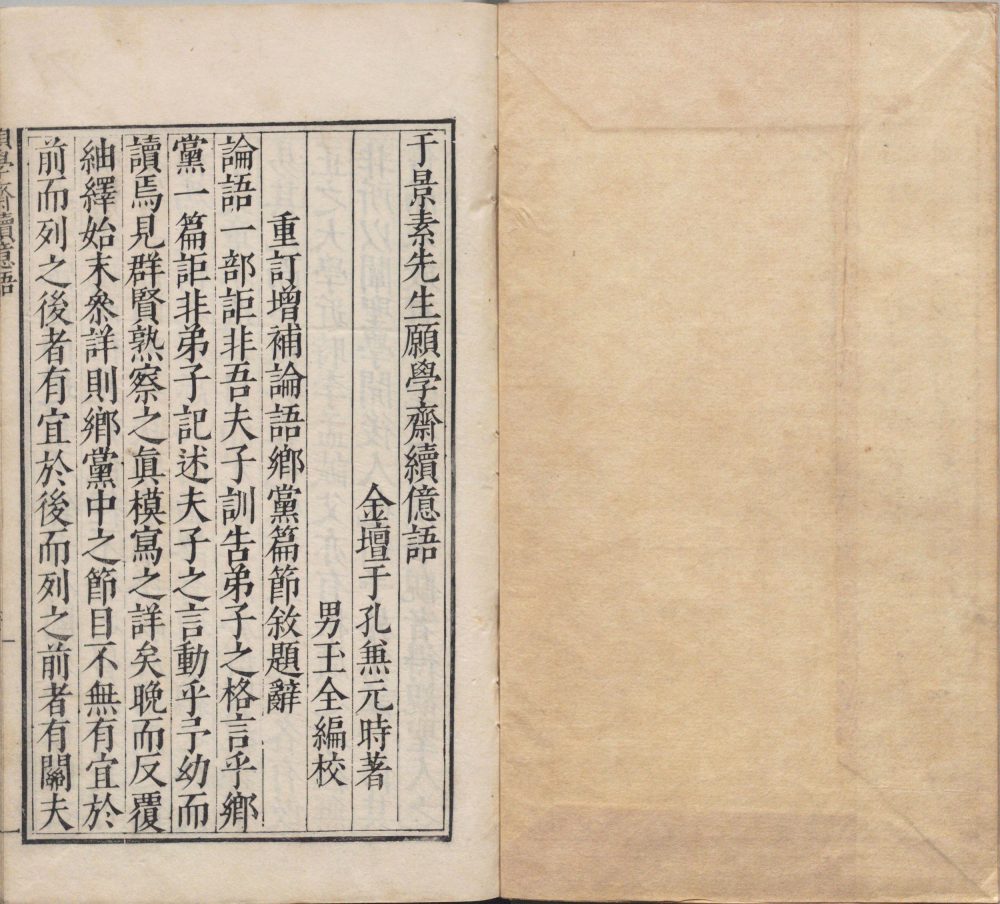 于景素先生願學齋續億語
金壇于孔兼元時著
男玉全編校
重訂增補論語鄉黨篇節敘題辭
論語一部詎非吾夫子訓告弟子之格言乎鄉
黨一篇詎非弟子記述夫子之言動乎予幼而
讀焉見群賢熟察之眞模寫之詳矣晚而反覆
紬繹始末叅詳則鄉黨中之節目不無有宜於
前而列之後者有宜於後而列之前者有關夫
願學齋續億語
一